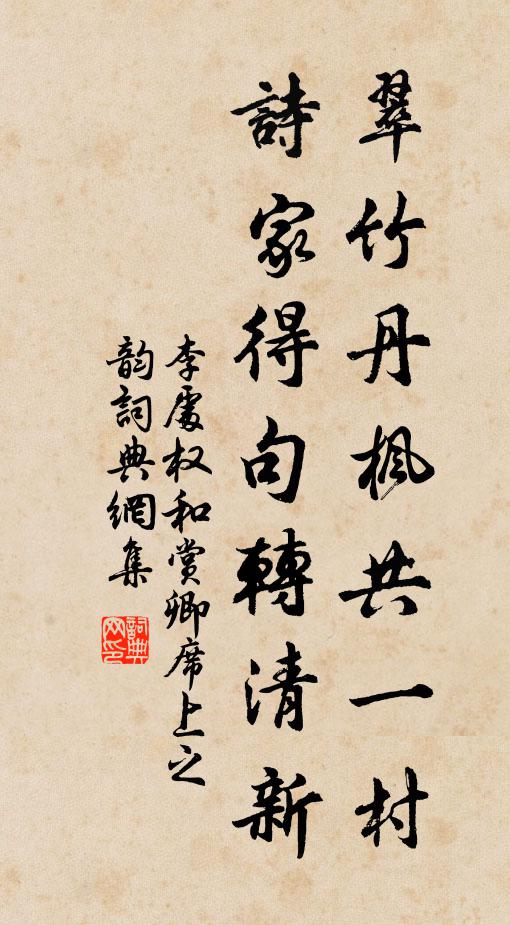 翠竹丹楓共一村
詩家得句轉清新
李處权和赏卿席上之
韵詞典網集
詞典
网印